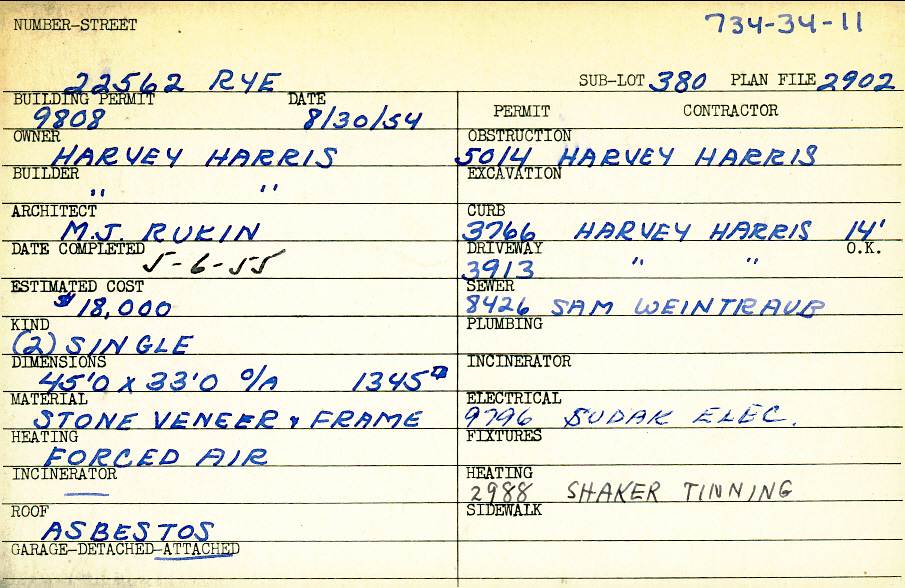 NUMBER-STREET
734-34-11
22562 RYE
SUB-LOT 380 PLAN FILE 2902
BUILDING PERMIT DATE
9808 8/30/54
PERMIT CONTRACTOR
OWNER
HARVEY HARRIS
OBSTRUCTION
5014 HARVEY HARRIS
BUILDER
" "
EXCAVATION
ARCHITECT
M.J. RUKIN
CURB
3766 HARVEY HARRIS 14'
DATE COMPLETED
5-6-55
DRIVEWAY O.K.
3913 " "
ESTIMATED COST
$18,000
SEWER
8426 SAM WEINTRAUB
KIND
(2) SINGLE
PLUMBING
DIMENSIONS
45'0 X 33'0 O/A 1345
INCINERATOR
MATERIAL
STONE VENEER & FRAME
ELECTRICAL
9796 SUDAK ELEC.
HEATING
FORCED AIR
FIXTURES
INCINERATOR
—
HEATING
2988 SHAKER TINNING
ROOF
ASBESTOS
SIDEWALK
GARAGE-DETACHED-ATTACHED